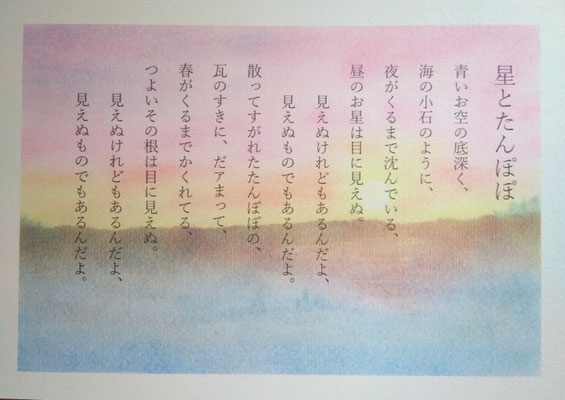 星とたんぽぽ
青いお空の底深く、
海の小石のように、
夜がくるまで沈んでいる、
昼のお星は目に見えぬ。
見えぬけれどもあるんだよ、
見えぬものでもあるんだよ。
散ってすがれたたんぽぽの、
瓦のすきに、だアまって、
春がくるまでかくれてる、
つよいその根は目に見えぬ。
見えぬけれどもあるんだよ、
見えぬものでもあるんだよ。